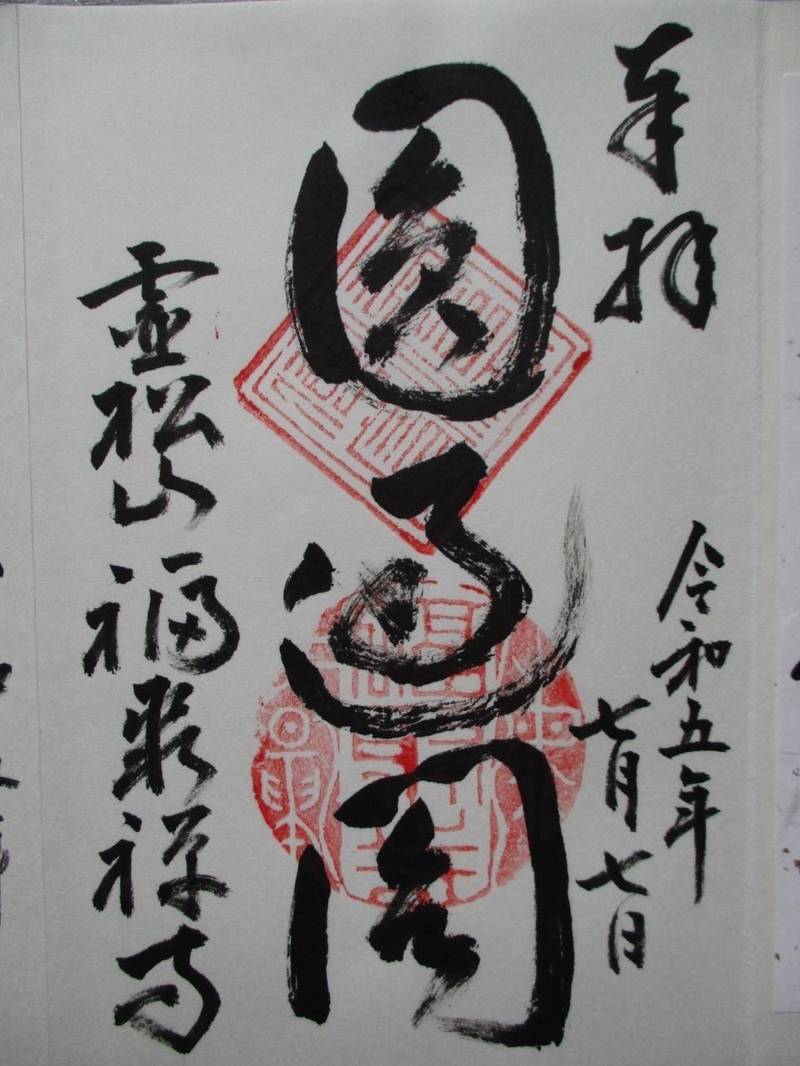 奉拝
令和五年
七月七日
圓通閣
霊松山
福聚禅寺